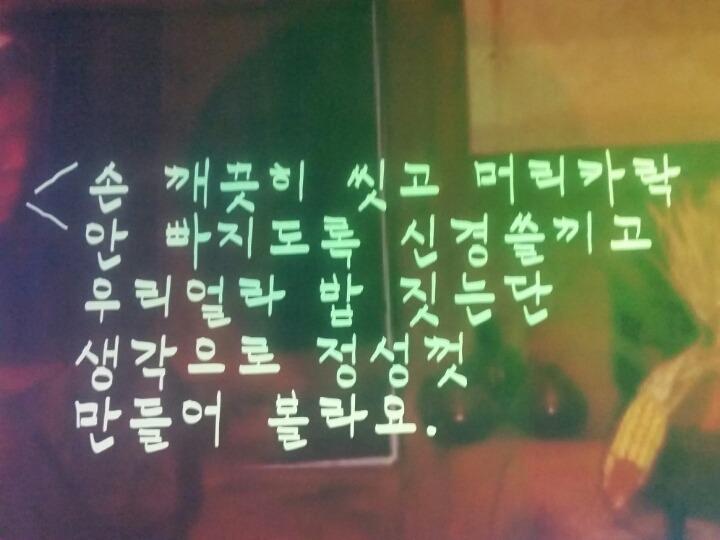 < 손 깨끗히 씻고 머리카락
안 빠지도록 신경쓸끼고
우리얼라 밥 짓는단
생각으로 정성껏
만들어 볼라요.